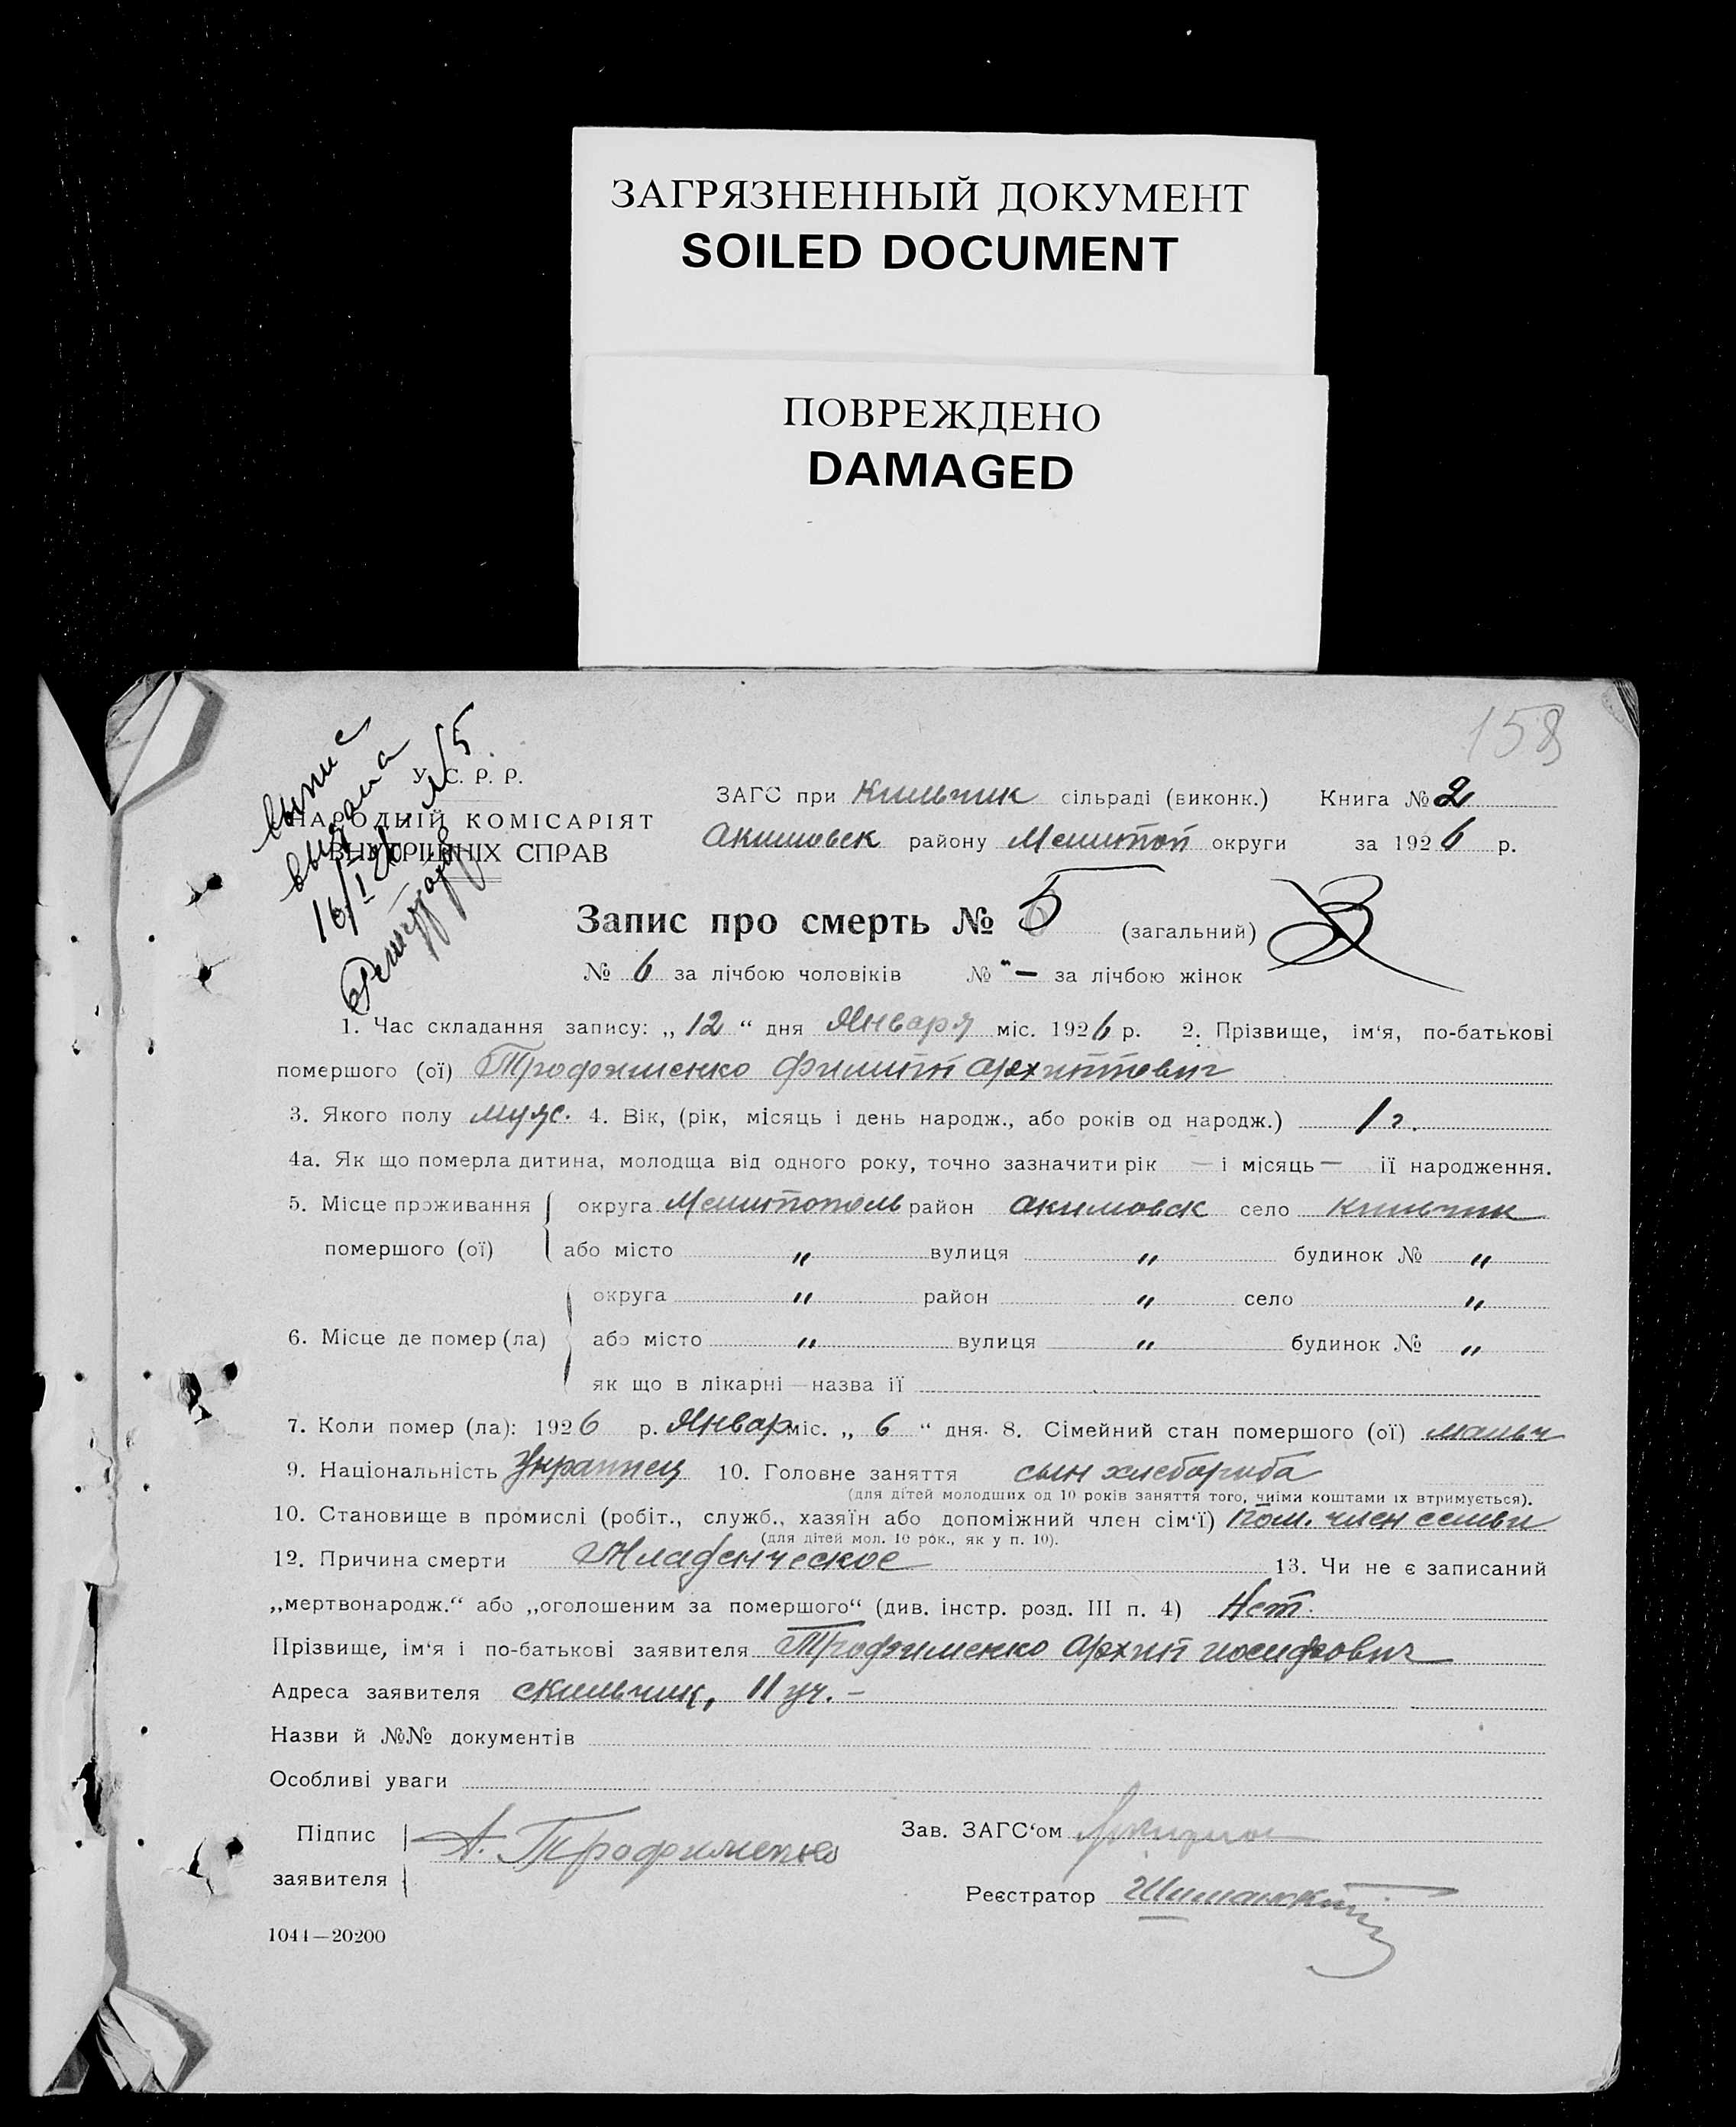 ЗАГРЯЗНЕННЫЙ ДОКУМЕНТ
SOILED DOCUMENT
ПОВРЕЖДЕНО
DAMAGED
158
У. С. Р. Р.
НАРОДНІЙ КОМІСАРІЯТ
ВНУТРІШНІХ СПРАВ
выпис
выдана
16/I 26 №5
ЗАГС при Кильчик сільраді (виконк.) Книга № 2
Акимовск району Мелитоп округи за 1926 р.
Запис про смерть № 5 (загальний)
№ 6 за лічбою чоловіків № "– за лічбою жінок
1. Час складання запису: „ 12 “ дня Января міс. 1926 р. 2. Прізвище, ім‘я, по-батькові
помершого (ої) Трофименко Филипп Архиппович
3. Якого полу муж. 4. Вік, (рік, місяць і день народж., або років од народж.) 1 г.
4а. Як що померла дитина, молодща від одного року, точно зазначити рік — і місяць — її народження.
5. Місце проживання округа Мелитополь район Акимовск село Кильчик
помершого (ої) або місто " вулиця " будинок № "
округа " район " село "
6. Місце де помер (ла) або місто " вулиця " будинок № "
як що в лікарні—назва її
7. Коли помер (ла): 1926 р. Январ міс. „ 6 “ дня. 8. Сімейний стан помершого (ої) мальч
9. Національність Украинец 10. Головне заняття сын хлебороба
(для дітей молодших од 10 років заняття того, чиїми коштами їх втримується).
10. Становище в промислі (робіт., служб., хазяїн або допоміжний член сім‘ї) Пом. член семьи
(для дітей мол. 10 рок., як у п. 10).
12. Причина смерти Младенческое 13. Чи не є записаний
„мертвонародж.“ або „оголошеним за помершого“ (див. інстр. розд. III п. 4) Нет.
Прізвище, ім‘я і по-батькові заявителя Трофименко Архип Иосифович
Адреса заявителя с Кильчик, 11 уч. –
Назви й №№ документів
Особливі уваги
Підпис заявителя А. Трофименко
Зав. ЗАГС‘ом
Реєстратор Шиманский
1044—20200